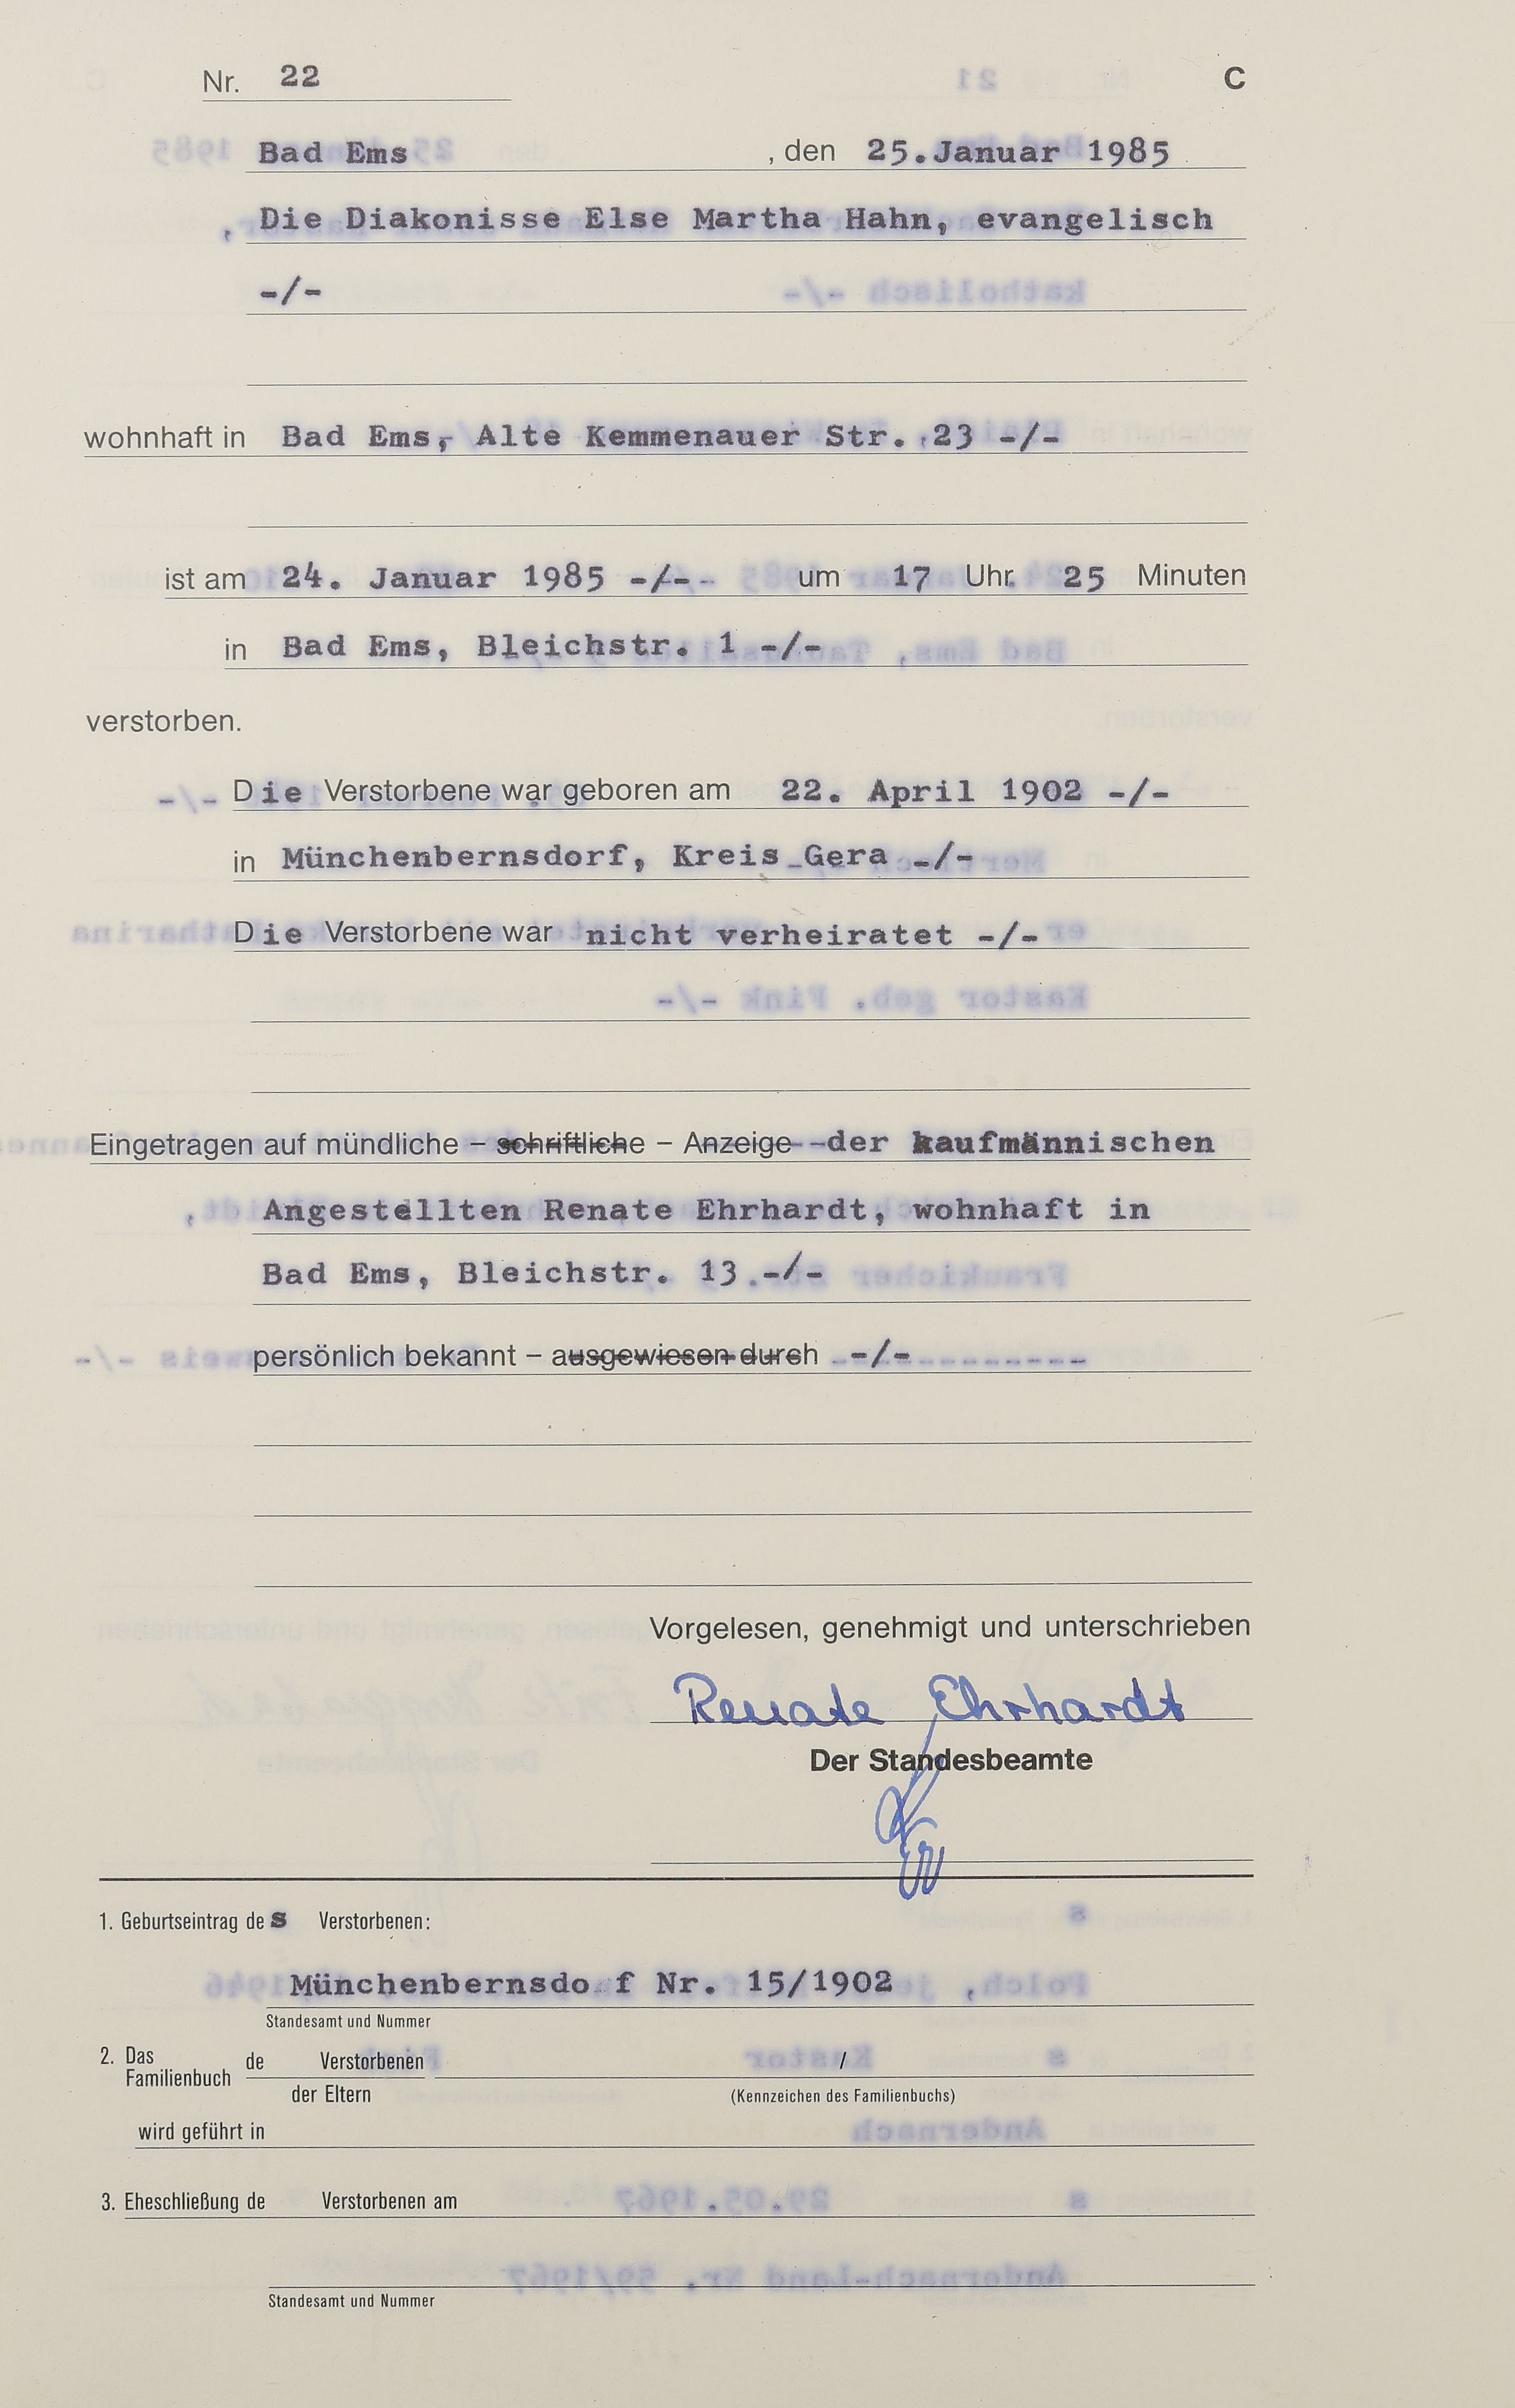 Nr. 22 C
Bad Ems , den 25.Januar 1985
Die Diakonisse Else Martha Hahn, evangelisch
-/-
wohnhaft in Bad Ems, Alte Kemmenauer Str. 23 -/-
ist am 24. Januar 1985 -/- um 17 Uhr 25 Minuten
in Bad Ems, Bleichstr. 1 -/-
verstorben.
Die Verstorbene war geboren am 22. April 1902 -/-
in Münchenbernsdorf, Kreis Gera -/-
Die Verstorbene war nicht verheiratet -/-
Eingetragen auf mündliche – schriftliche – Anzeige --der kaufmännischen
Angestellten Renate Ehrhardt, wohnhaft in
Bad Ems, Bleichstr. 13 -/-
persönlich bekannt – ausgewiesen durch -/-
Vorgelesen, genehmigt und unterschrieben
Renate Ehrhardt
Der Standesbeamte
1. Geburtseintrag des Verstorbenen:
Münchenbernsdo f Nr. 15/1902
Standesamt und Nummer
2. Das Familienbuch de Verstorbenen /
der Eltern (Kennzeichen des Familienbuchs)
wird geführt in
3. Eheschließung de Verstorbenen am
Standesamt und Nummer